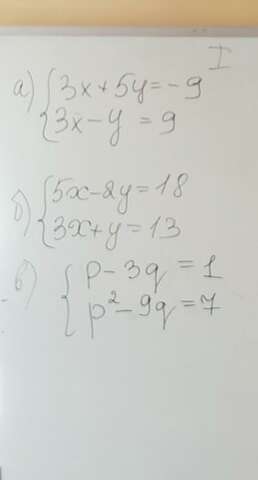 I
а) 3x+5y=-9
3x-y=9
б) 5x-2y=18
3x+y=13
в) p-3q=1
p²-9q=7